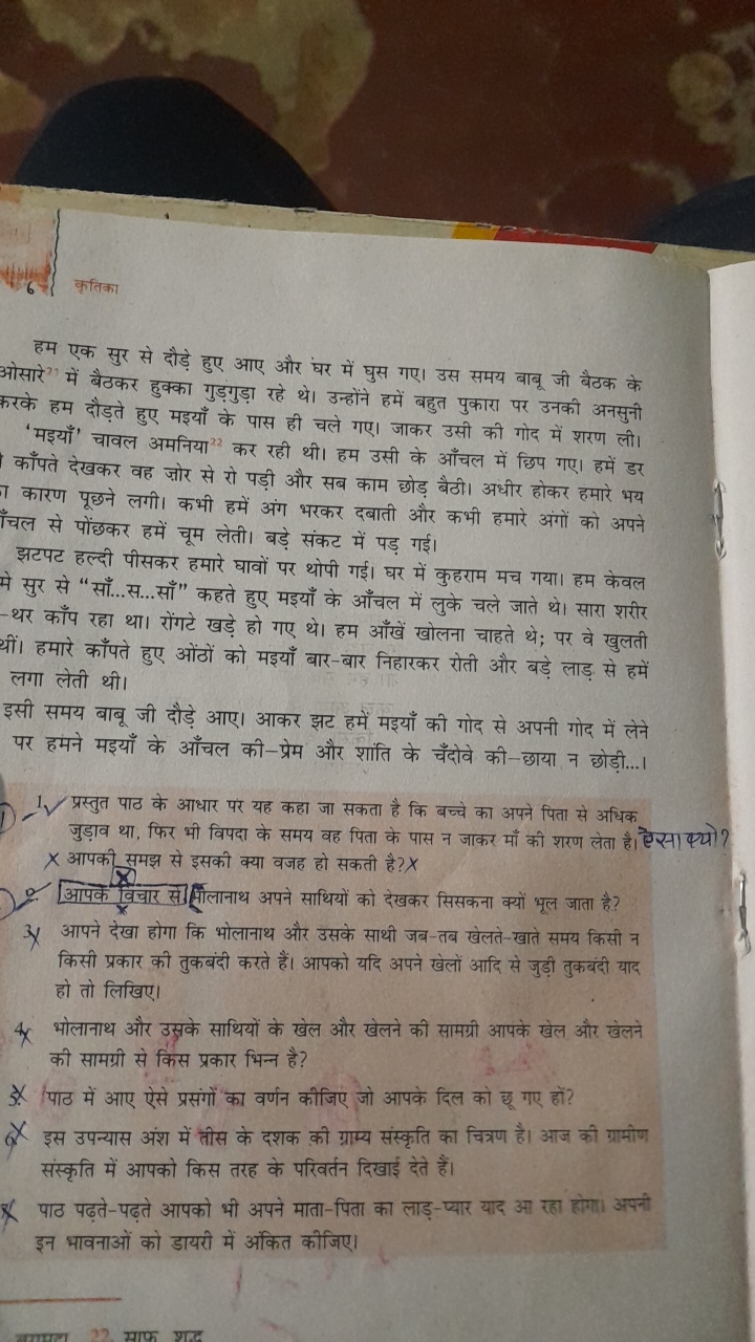 6 कृतिका
हम एक सुर से दौड़े हुए आए और घर में घुस गए। उस समय बाबू जी बैठक के
ओसारे²¹ में बैठकर हुक्का गुड़गुड़ा रहे थे। उन्होंने हमें बहुत पुकारा पर उनकी अनसुनी
करके हम दौड़ते हुए मइयाँ के पास ही चले गए। जाकर उसी की गोद में शरण ली।
'मइयाँ' चावल अमनिया²² कर रही थी। हम उसी के आँचल में छिप गए। हमें डर
काँपते देखकर वह जोर से रो पड़ी और सब काम छोड़ बैठी। अधीर होकर हमारे भय
कारण पूछने लगी। कभी हमें अंग भरकर दबाती और कभी हमारे अंगों को अपने
ँचल से पोंछकर हमें चूम लेती। बड़े संकट में पड़ गई।
झटपट हल्दी पीसकर हमारे घावों पर थोपी गई। घर में कुहराम मच गया। हम केवल
मे सुर से "साँ...स...साँ" कहते हुए मइयाँ के आँचल में लुके चले जाते थे। सारा शरीर
-थर काँप रहा था। रोंगटे खड़े हो गए थे। हम आँखें खोलना चाहते थे; पर वे खुलती
थीं। हमारे काँपते हुए ओंठों को मइयाँ बार-बार निहारकर रोती और बड़े लाड़ से हमें
लगा लेती थी।
इसी समय बाबू जी दौड़े आए। आकर झट हमें मइयाँ की गोद से अपनी गोद में लेने
पर हमने मइयाँ के आँचल की-प्रेम और शांति के चँदोवे की-छाया न छोड़ी...।
1. प्रस्तुत पाठ के आधार पर यह कहा जा सकता है कि बच्चे का अपने पिता से अधिक
जुड़ाव था, फिर भी विपदा के समय वह पिता के पास न जाकर माँ की शरण लेता है। ऐसा क्यों?
आपकी समझ से इसकी क्या वजह हो सकती है?
2. आपके विचार से भोलानाथ अपने साथियों को देखकर सिसकना क्यों भूल जाता है?
3. आपने देखा होगा कि भोलानाथ और उसके साथी जब-तब खेलते-खाते समय किसी न
किसी प्रकार की तुकबंदी करते हैं। आपको यदि अपने खेलों आदि से जुड़ी तुकबंदी याद
हो तो लिखिए।
4. भोलानाथ और उसके साथियों के खेल और खेलने की सामग्री आपके खेल और खेलने
की सामग्री से किस प्रकार भिन्न है?
5. पाठ में आए ऐसे प्रसंगों का वर्णन कीजिए जो आपके दिल को छू गए हों?
6. इस उपन्यास अंश में तीस के दशक की ग्राम्य संस्कृति का चित्रण है। आज की ग्रामीण
संस्कृति में आपको किस तरह के परिवर्तन दिखाई देते हैं।
पाठ पढ़ते-पढ़ते आपको भी अपने माता-पिता का लाड़-प्यार याद आ रहा होगा। अपनी
इन भावनाओं को डायरी में अंकित कीजिए।
22 साफ़ शुद्ध